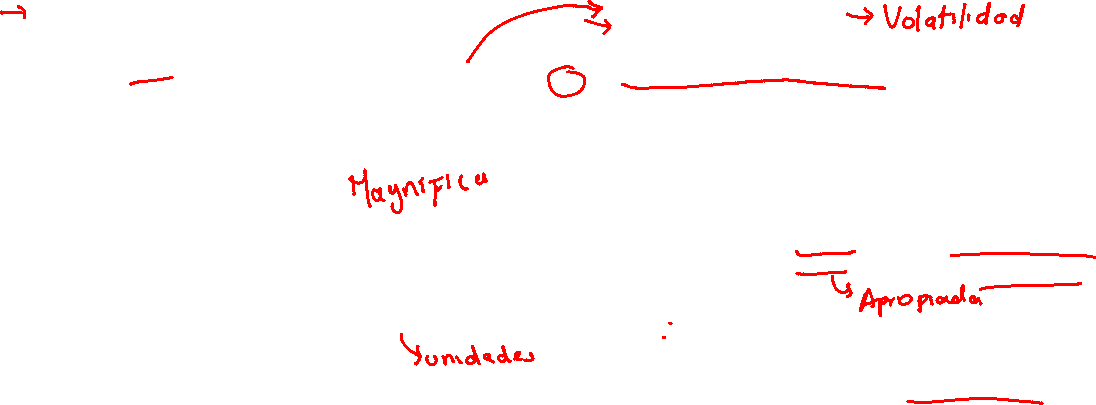 → Volatilidad
Magnifica
Apropiada
unidades